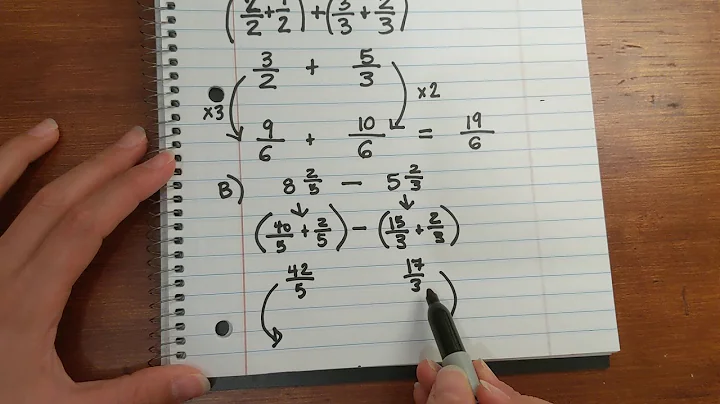 (2/2 + 1/2) + (3/3 + 2/3)
3/2 + 5/3
x3 x2
9/6 + 10/6 = 19/6
B) 8 2/5 — 5 2/3
(40/5 + 2/5) — (15/3 + 2/3)
42/5 17/3